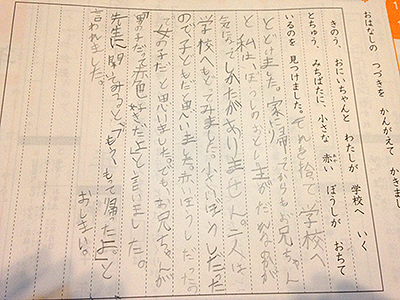 おはなしの つづきを かんがえて かきまし
きのう、おにいちゃんと わたしが 学校へ いく
とちゅう、みちばたに、小さな 赤い ぼうしが おちて
いるのを 見つけました。それを捨て学校へ
とどけました。家に帰ってからもお兄ちゃん
と私は、ぼうしのおとし主がだれなのか
気になってしかたがありません。二人は
学校へもどてみました。小さいぼうしだった
ので子どもだと思いまた赤ぼうしだったの
で女の子だと思いました。でも、お兄ちゃんが
「男の子だって赤色好きだよ」と言いました。
先生に聞いてみると、「もうもて帰たよ。」と
言われました。
おしまい。